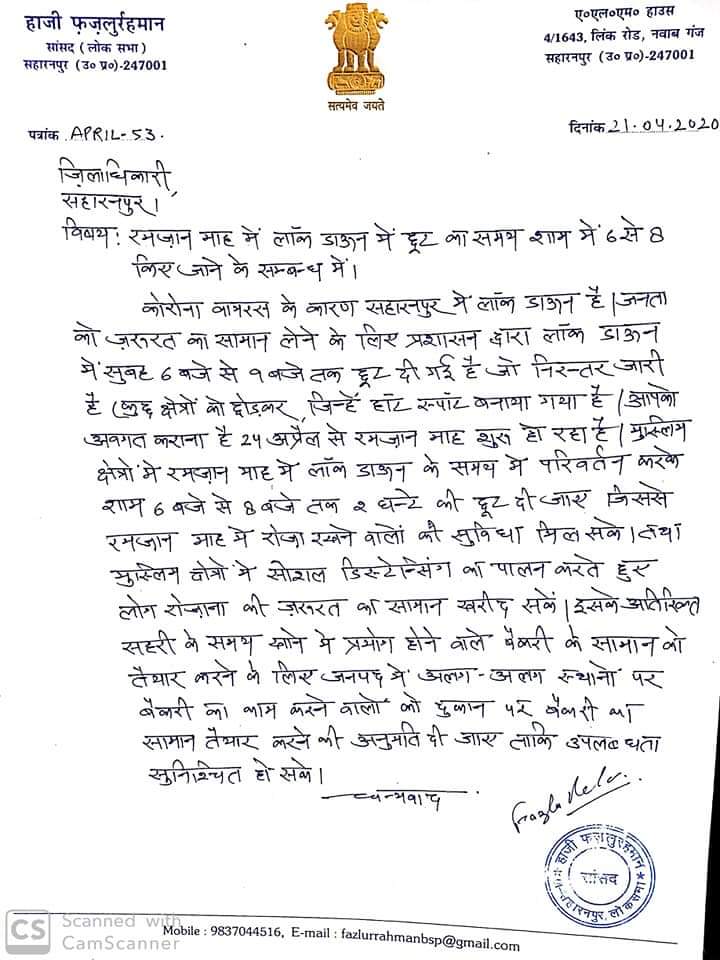 हाजी फ़ज़लुर्रहमान
सांसद (लोक सभा)
सहारनपुर (उ० प्र०)-247001
सत्यमेव जयते
ए०एल०एम० हाउस
4/1643, लिंक रोड, नवाब गंज
सहारनपुर (उ० प्र०)-247001
पत्रांक .APRIL-53.
दिनांक 21.04.2020
ज़िलाधिकारी,
सहारनपुर।
विषय: रमज़ान माह में लॉक डाऊन में छूट का समय शाम में 6 से 8
किए जाने के सम्बन्ध में।
कोरोना वायरस के कारण सहारनपुर में लॉक डाऊन है। जनता
को ज़रूरत का सामान लेने के लिए प्रशासन द्वारा लॉक डाऊन
में सुबह 6 बजे से 9 बजे तक छूट दी गई है जो निरन्तर जारी
है (कुछ क्षेत्रों को छोड़कर, जिन्हें हॉट स्पॉट बनाया गया है। आपको
अवगत कराना है 24 अप्रैल से रमज़ान माह शुरू हो रहा है। मुस्लिम
क्षेत्रों में रमज़ान माह में लॉक डाऊन के समय में परिवर्तन करके
शाम 6 बजे से 8 बजे तक 2 घन्टे की छूट दी जाए जिससे
रमज़ान माह में रोज़ा रखने वालों को सुविधा मिल सके। तथा
मुस्लिम क्षेत्रों में सोशल डिस्टेन्सिंग का पालन करते हुए
लोग रोज़ाना की ज़रूरत का सामान खरीद सकें। इसके अतिरिक्त
सहरी के समय खाने में प्रयोग होने वाले बैकरी के सामान को
तैयार करने के लिए जनपद में अलग-अलग स्थानों पर
बैकरी का काम करने वालों को दुकान पर बैकरी का
सामान तैयार करने की अनुमति दी जाए ताकि उपलब्धता
सुनिश्चित हो सके।
धन्यवाद
हाजी फज़लुर्रहमान
सांसद
सहारनपुर, लोकसभा
Mobile : 9837044516, E-mail : fazlurrahmanbsp@gmail.com
CS Scanned with
CamScanner